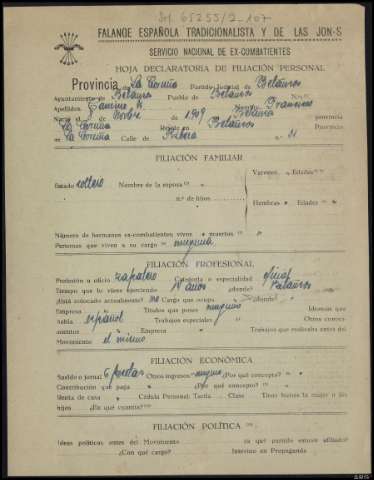 Sol. 65255/2-107
FALANGE ESPAÑOLA TRADICIONALISTA Y DE LAS JON-S
SERVICIO NACIONAL DE EX-COMBATIENTES
HOJA DECLARATORIA DE FILIACIÓN PERSONAL
Provincia de La Coruña Partido Judicial de Betanzos
Ayuntamiento de Betanzos Pueblo de Betanzos
Apellidos Nombre Francisco
Nació el de 1909 provincia
La Coruña Reside en Betanzos Provincia
de La Coruña Calle de Ribera n.º 21
FILIACIÓN FAMILIAR
Estado soltero Nombre de la esposa " Varones " Edades "
n.º de hijos " Hembras " Edades "
Número de hermanos ex-combatientes vivos " muertos "
Personas que viven a su cargo ninguna
FILIACIÓN PROFESIONAL
Profesión u oficio zapatero Categoría o especialidad oficial
Tiempo que lo viene ejerciendo años ¿dónde? Betanzos
¿Está colocado actualmente? no Cargo que ocupa ¿dónde?
Empresa " Títulos que posee ninguno Idiomas que
habla español Trabajos especiales " Otros conoci-
mientos " Empresa " Trabajos que realizaba antes del
Movimiento el mismo
FILIACIÓN ECONÓMICA
Sueldo o jornal 6 pesetas Otros ingresos ninguno ¿Por qué concepto? "
Contribución que paga " ¿Por qué concepto? "
Renta de casa " Cédula Personal Tarifa Clase Tiene bienes la mujer o los
hijos ¿En qué cuantía?
FILIACIÓN POLÍTICA
Ideas políticas antes del Movimiento ¿a qué partido estuvo afiliado?
¿Con qué cargo? Intervino en Propaganda